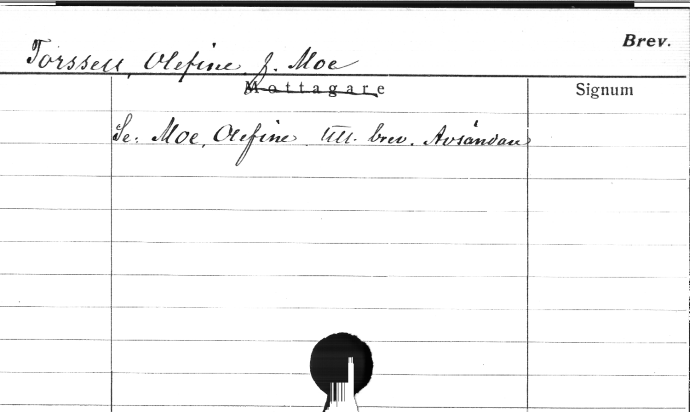 Brev.
Torssell, Olefine f. Moe
Mottagare
Signum
Se: Moe, Olefine till. brev. Avsändare